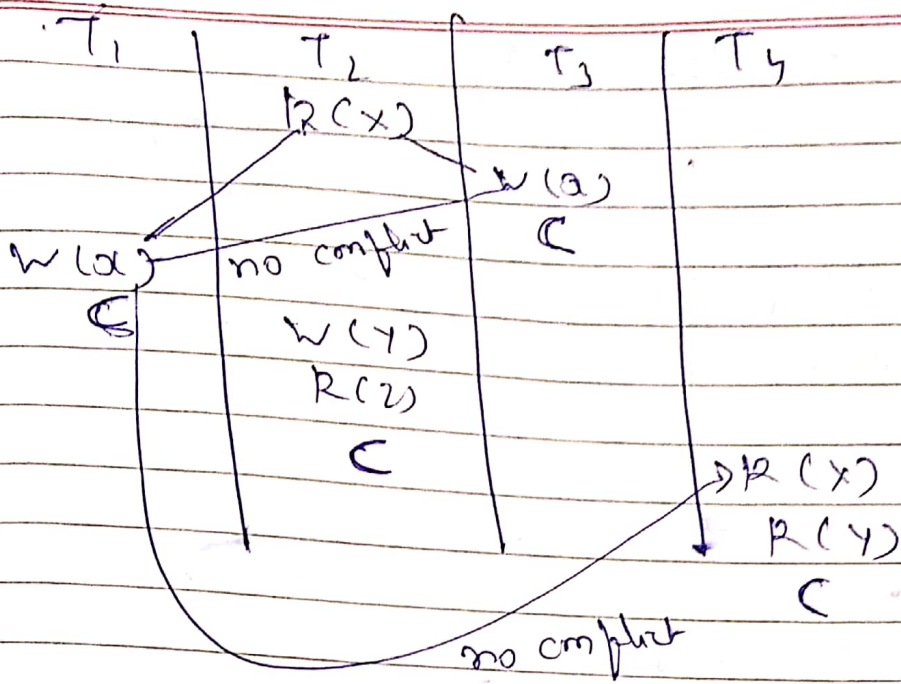 T1 T2 T3 T4
R(X)
W(a)
C
W(x) no conflict
C
W(Y)
R(Z)
C
R(X)
R(Y)
C
no conflict